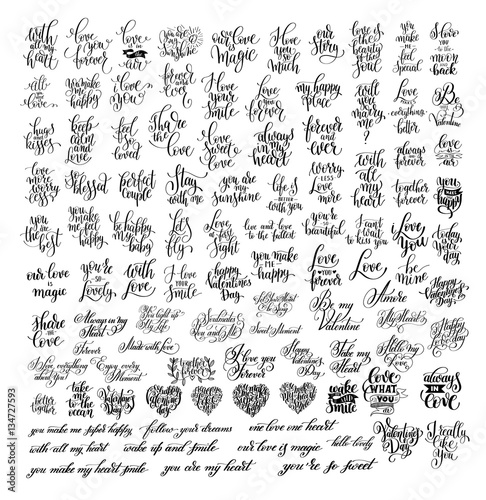 with all my heart
love you forever
love is in the air
you are my sunshine
our love is magic
I love you so much
our story
love is the beauty of the soul
you make me feel special
I love you to the moon and back
all you need is love
you make me happy
I love you
forever & ever
I love your smile
love you forever
my happy place
will you marry me?
love makes everything better
Be my Valentine
hugs and kisses
keep calm and love
I feel so loved
Share the love
love sweet love
always in my heart
forever and ever
with all my heart
always and forever
love is in the air
love more worry less
So blessed
perfect couple
Stay with me
you are my sunshine
life is better with you
worry less Love more
together forever
you make me happy
you are the best
you make me feel happy
be happy my baby
let's fly
Love at first sight
live and love to the fullest
you're beautiful
I can't wait to kiss you
Love You
today is your day
our love is magic
you're so Lovely
with Love
I love your smile
happy Valentine's Day
you make me happy
Love you forever
Love
be mine
Happy Valentine's Day
Share the Love
Always in my Heart
You light up my Life
Soulmates You and Me
Be my Valentine
Amore
Forever
Made with love
Sweet Moment
I Love everything about You
Enjoy every Moment
together forever
I love you Forever
Happy Valentine's Day
Take my Heart
better together
take me to the ocean
wake up and smile
love what you do
always in love
you make me super happy
follow your dreams
one love one heart
Valentine's Day
I really like You
with all my heart
wake up and smile
our love is magic
hello lovely
you make my heart smile
you are my heart
you're so sweet
134727593
Adobe Stock